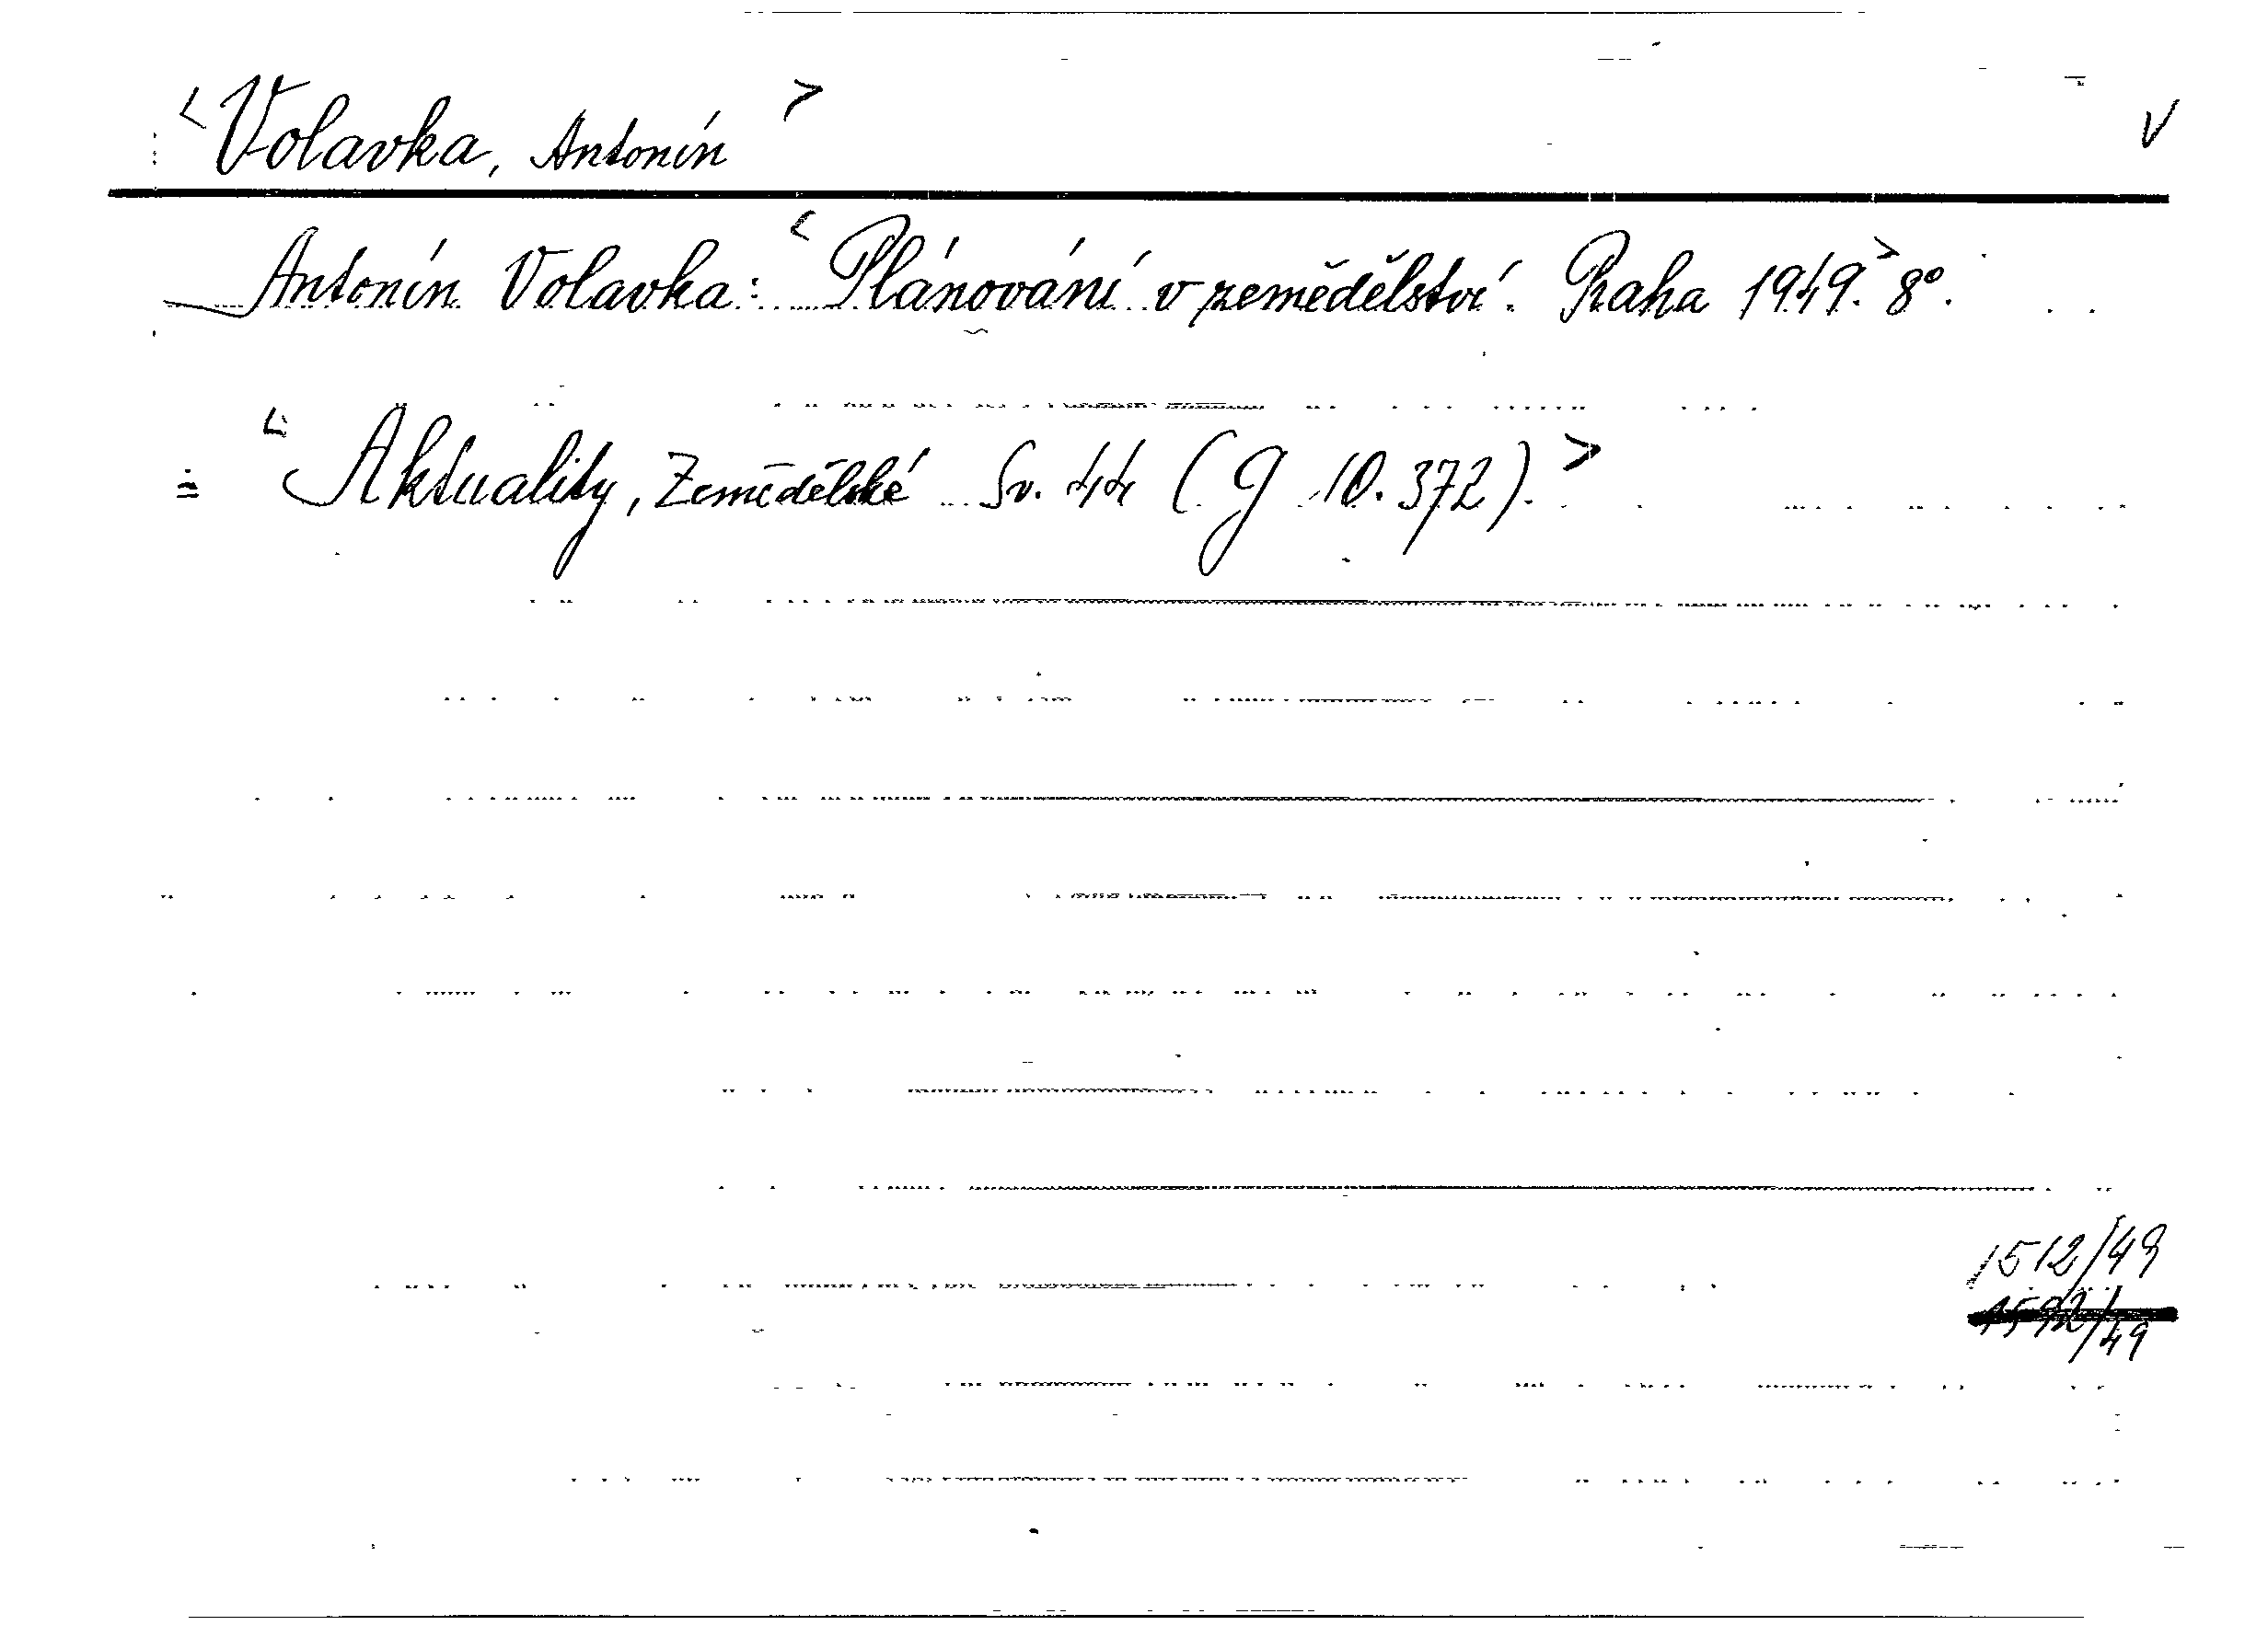 <Volavka, Antonín> V
Antonín Volavka: <Plánování v zemědělství. Praha 1949.> 8°.
= <Aktuality, Zemědělské Sv. 44 (G 10.372).>
1512/49
1592/49